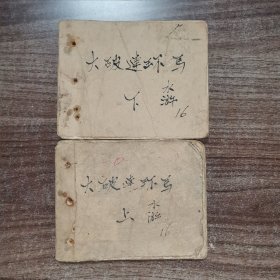 大破连环马
下
水浒
16
大破连环马
上
水浒
16